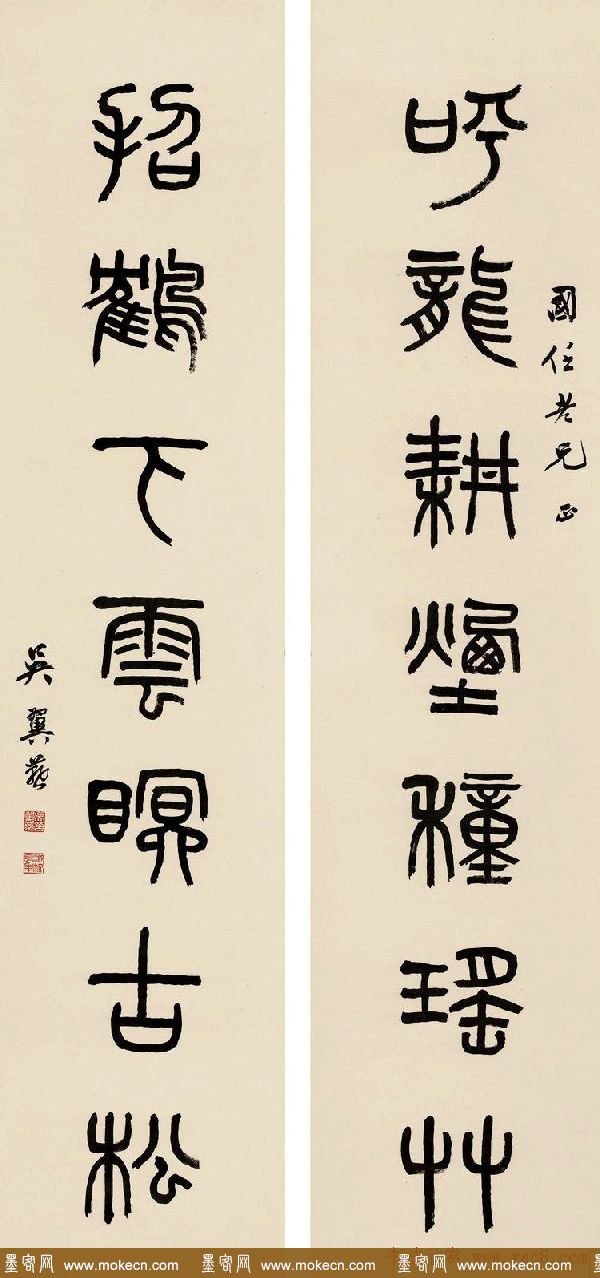 國任老兄 正
呼龍耕煙種瑤艸
招鶴下雲瞑古松
吳翼燕
墨客网 www.mokecn.com 墨客网 www.mokecn.com 墨客网 www.mokecn.com